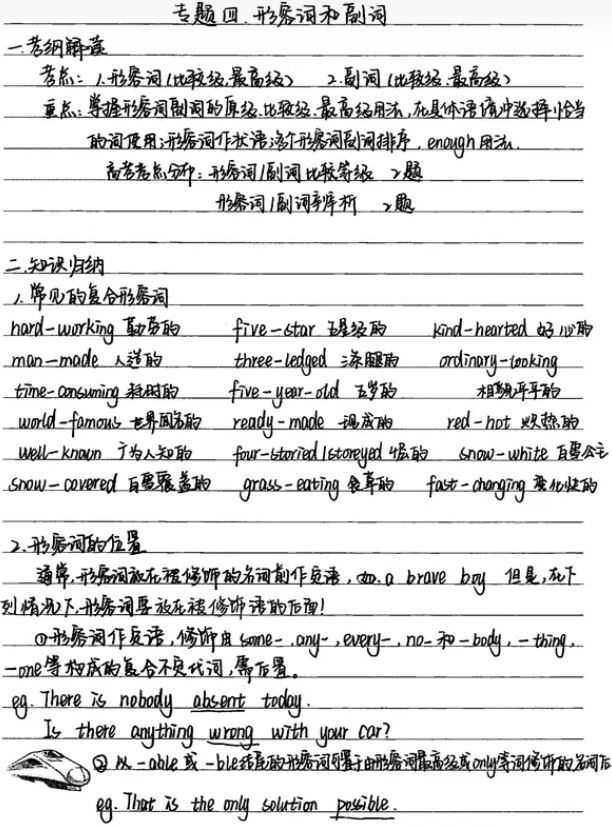 专题四.形容词和副词
一.考纲解读
考点：1.形容词(比较级.最高级)  2.副词(比较级.最高级)
重点：掌握形容词副词的原级.比较级.最高级用法，在具体语境中选择恰当
的词使用；形容词作状语；多个形容词副词排序，enough用法.
高考考点分布：形容词/副词比较等级 2题
形容词/副词辨析 2题
二.知识归纳
1.常见的复合形容词
hard-working 勤劳的 five-star 五星级的 kind-hearted 好心的
man-made 人造的 three-ledged 三条腿的 ordinary-looking
time-consuming 耗时的 five-year-old 五岁的 相貌平平的
world-famous 世界闻名的 ready-made 现成的 red-hot 炽热的
well-known 广为人知的 four-storied/storeyed 4层的 snow-white 白雪公主
snow-covered 白雪覆盖的 grass-eating 食草的 fast-changing 变化快的
2.形容词的位置
通常,形容词放在被修饰的名词前作定语，如.a brave boy 但是,在下
列情况下,形容词要放在被修饰语的后面!
①形容词作定语,修饰由some-,any-,every-,no-和-body,-thing,
-one等构成的复合不定代词,需后置。
eg. There is nobody absent today.
Is there anything wrong with your car?
②以-able或-ble结尾的形容词可置于由形容词最高级或only等词修饰的名词后
eg. That is the only solution possible.